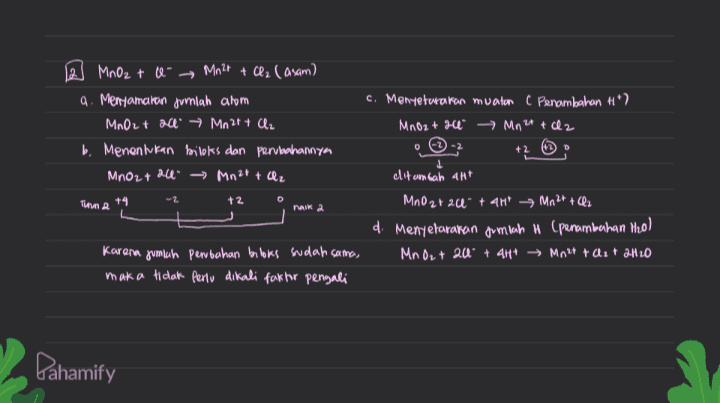 2 MnO2 + Cl- → Mn2+ + Cl2 (asam)
a. Menyamakan jumlah atom
MnO2 + 2Cl- → Mn2+ + Cl2
b. Menentukan biloks dan perubahannya
MnO2 + 2Cl- → Mn2+ + Cl2
Turun 2 +4 -2 +2 0 naik 2
Karena jumlah perubahan biloks sudah sama,
maka tidak perlu dikali faktor pengali
c. Menyetarakan muatan ( Penambahan H+)
MnO2 + 2Cl- → Mn2+ + Cl2
0 -2 -2 +2 +2 0
↓
ditambah 4H+
MnO2 + 2Cl- + 4H+ → Mn2+ + Cl2
d. Menyetarakan jumlah H (penambahan H2O)
MnO2 + 2Cl- + 4H+ → Mn2+ + Cl2 + 2H2O
Pahamify